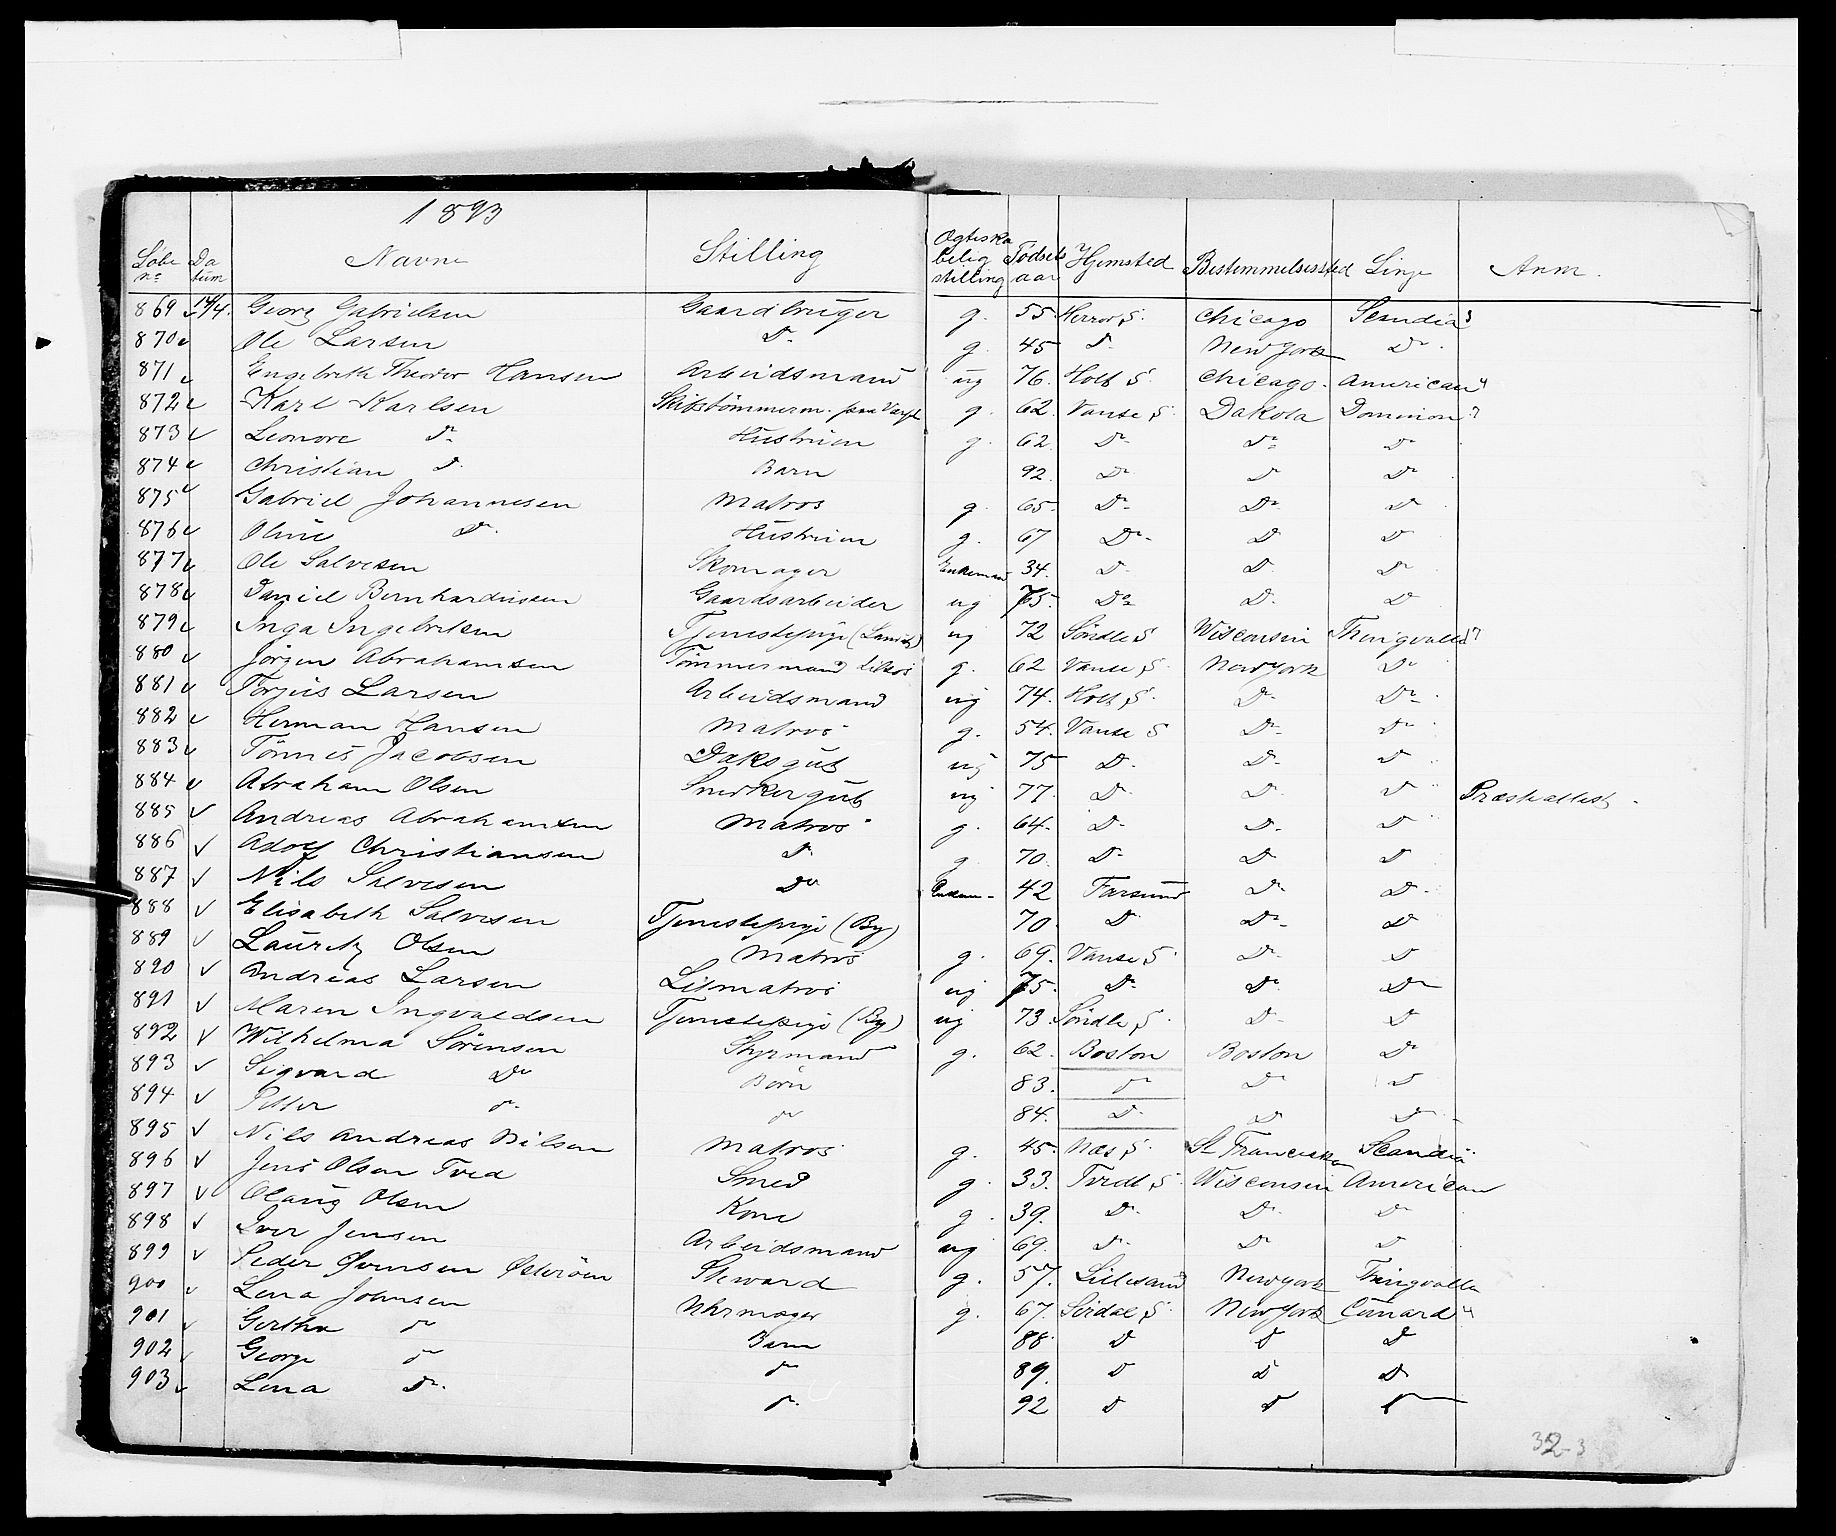 1893
Løbe no Datum Navne Stilling Ægteskabelig stilling Fødselsaar Hjemsted Bestemmelsessted Linje Anm.
869 14/4. Georg Gabrielsen Gaardbruger g. 55 Herrø S. Chicago Scandia
870 Ole Larsen Do g. 45 Do New York Do
871 Engebreth Theodor Hansen Arbeidsmand ug 76. Holt S. Chicago. American
872 Karl Karlsen Skibstømmerm. paa Værft g. 62. Vanse S. Dakota Dominion
873 Leonore Do Hustruen g. 62 Do Do Do
874 Christian Do Barn 92 Do Do Do
875 Gabriel Johannesen Matros g. 65. Do Do Do
876 Oline Do Hustruen g. 67 Do Do Do
877 Ole Salvesen Skomager Enkemand 34. Do Do Do
878 Daniel Bernhardussen Gaardsarbeider ug 75. Do Do Do
879 Inga Ingebretsen Tjenestepige (Landet) ug 72 Søndle S Wisconsin Thingvalla
880 Jørgen Abrahamsen Tømmermand tilsøs g. 62 Vanse S. New York Do
881 Torjus Larsen Arbeidsmand ug 74. Holt S. Do Do
882 Herman Hansen Matros g. 54. Vanse S Do Do
883 Tønnes Jacobsen Daksgut ug 75 Do Do Do
884 Abraham Olsen Snedkergut ug 77. Do Do Do Præsteattest.
885 Andreas Abrahamsen Matros g. 64. Do Do Do
886 Adolf Christiansen Do g 70. Do Do Do
887 Nils Salvesen Do Enkem- 42 Farsund Do Do
888 Elisabeth Salvesen Tjenestepige (By) 70. Do Do Do
889 Lauritz Olsen Matros g. 69. Vanse S. Do Do
890 Andreas Larsen Letmatros ug 75. Do Do Do
891 Maren Ingvaldsen Tjenestepige (By) ug 73. Søndle S. Do Do
892 Wilhelma Sørensen Styrmand g. 62. Boston Boston Do
893 Sigvard Do Børn 83. Do Do Do
894 Petter Do Do 84. Do Do Do
895 Nils Andreas Nilsen Matros g. 45. Næs S. St Francisko Scandia
896 Jens Olsen Tved Smed g. 33. Tvedt S. Wisconsin American
897 Olaug Olsen Kone g. 39. Do Do Do
898 Iver Jensen Arbeidsmand ug 69. Do Do Do
899 Peder Syvensen Østerøen Steward g. 57. Lillesand New York Thingvalla
900 Lena Johnsen Uhrmager g. 67. Sirdal S. New York Cunard
901 Gertha Do Barn 88. Do Do Do
902 George Do Do 89. Do Do Do
903 Lena Do Do 92 Do Do Do
32-3